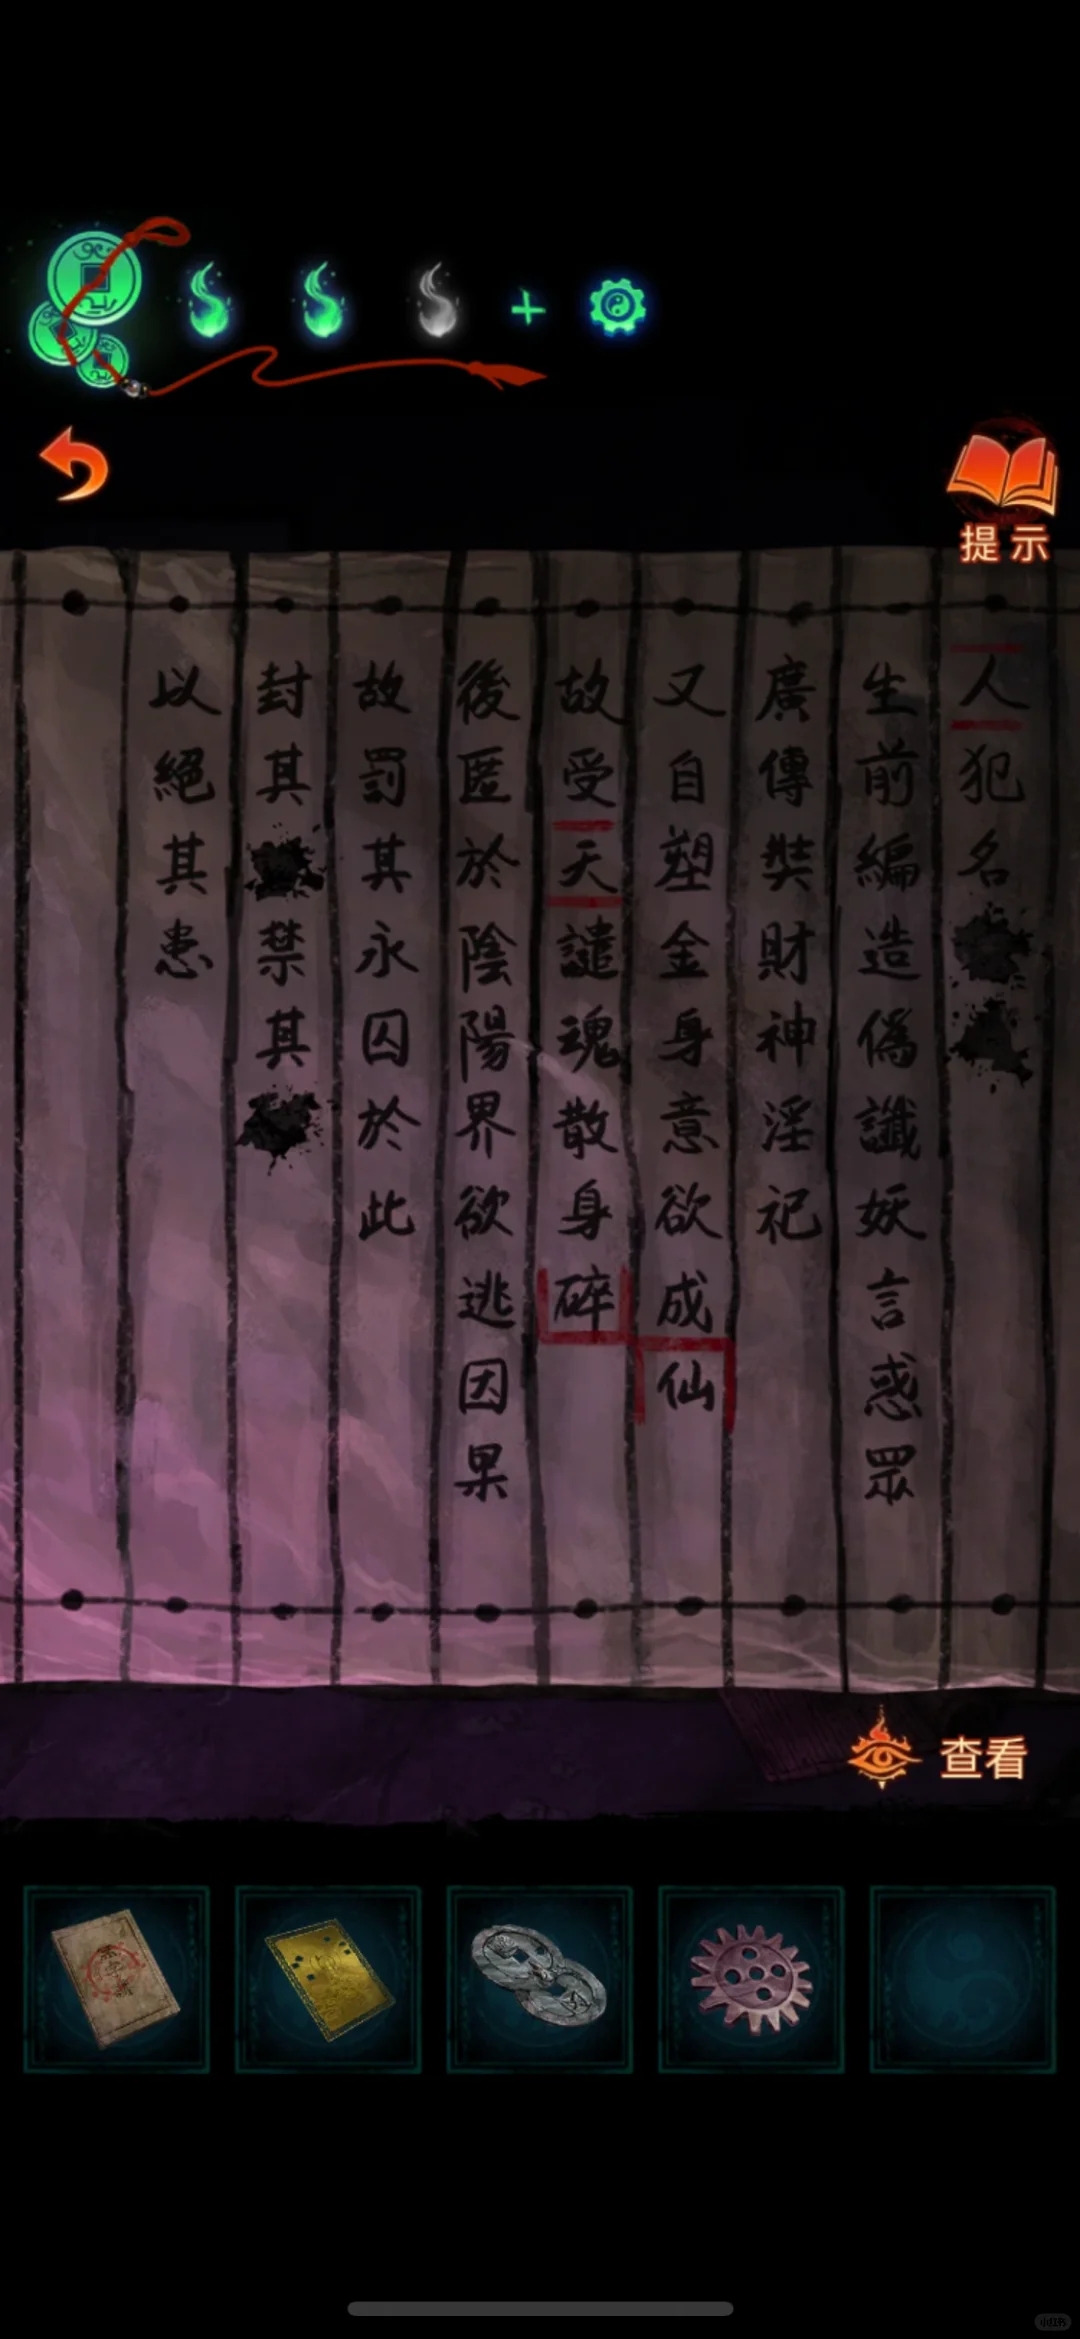 提示
人犯名
生前編造偽讖妖言惑眾
廣傳奘財神淫祀
又自塑金身意欲成仙
故受天譴魂散身碎
後匿於陰陽界欲逃因果
故罰其永囚於此
封其
禁其
以絕其患
查看
小红书